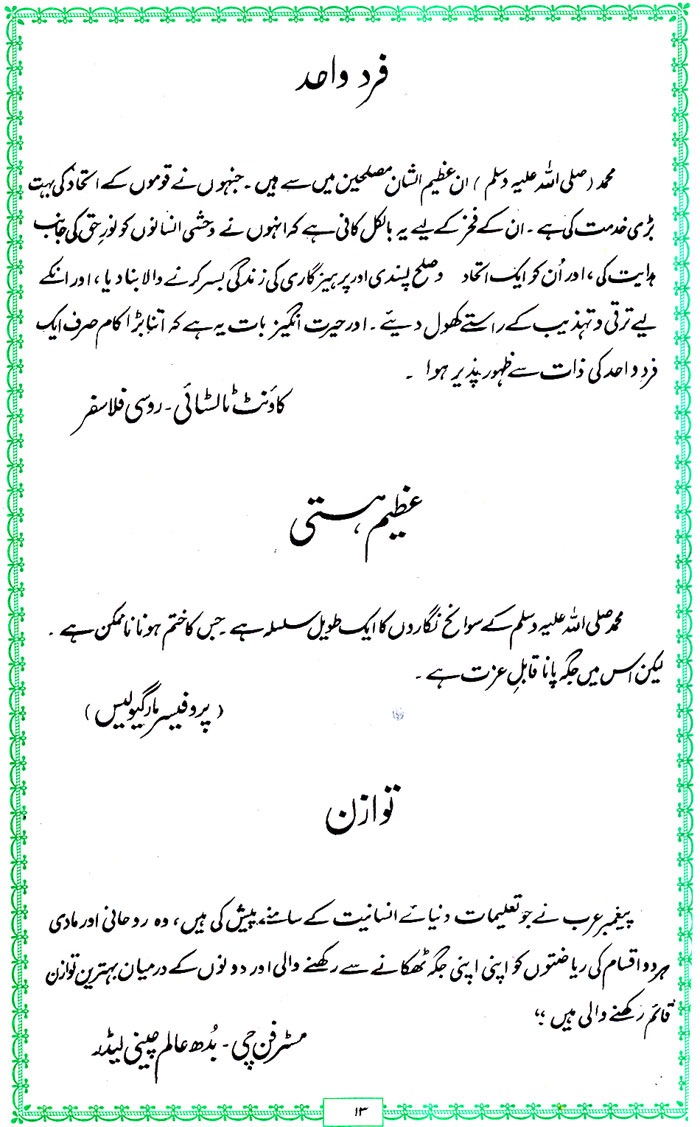 فرد واحد
محمد (صلی اللہ علیہ وسلم) ان عظیم الشان مصلحین میں سے ہیں۔ جنہوں نے قوموں کے اتحاد کی بہت
بڑی خدمت کی ہے۔ ان کے فخر کے لیے یہ بالکل کافی ہے کہ انہوں نے وحشی انسانوں کو نورِ حق کی جانب
ہدایت کی، اور اُن کو ایک اتحاد و صلح پسندی اور پرہیزگاری کی زندگی بسر کرنے والا بنا دیا، اور انکے
لیے ترقی و تہذیب کے راستے کھول دیئے۔ اور حیرت انگیز بات یہ ہے کہ اتنا بڑا کام صرف ایک
فرد واحد کی ذات سے ظہور پذیر ہوا۔
کاؤنٹ ٹالسٹائی۔ روسی فلاسفر
عظیم ہستی
محمد صلی اللہ علیہ وسلم کے سوانح نگاروں کا ایک طویل سلسلہ ہے۔ جس کا ختم ہونا ناممکن ہے۔
لیکن اس میں جگہ پانا قابلِ عزت ہے۔
(پروفیسر مارگیولیس)
توازن
پیغمبر عرب نے جو تعلیمات دنیائے انسانیت کے سامنے پیش کی ہیں، وہ روحانی اور مادی
ہر دو اقسام کی ریاضتوں کو اپنی اپنی جگہ ٹھکانے سے رکھنے والی اور دونوں کے درمیان بہترین توازن
قائم رکھنے والی ہیں"
مسٹر فن چی۔ بُدھ عالم چینی لیڈر
۱۳